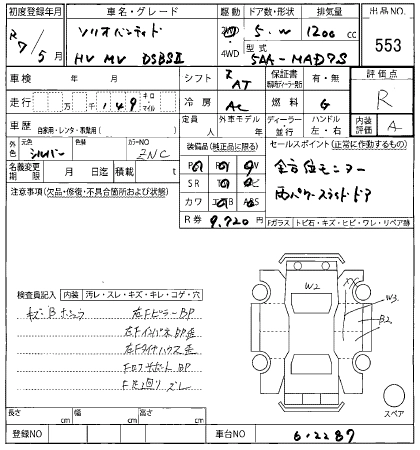 初度登録年月 車名・グレード 駆動 ドア数・形状 排気量 出品NO.
R7/5 ソリオバンディット 2WD 5.W 1200 cc 553
HV MV DSBSⅡ 4WD 型式 5AA-MAD7S
車検 年 月 シフト AT 保証書 有・無 評価点
走行 万 千 149 キロ・マイル 冷房 AC 燃料 G ハンドル 左・右 R
車歴 自家用・レンタ・事業用( ) 定員 人 外車モデル 年 ディーラー 並行 内装評価 A
外色 元色 シルバー 色替 カラーNO ZNC 装備品(純正品に限る) セールスポイント(正常に作動するもの)
名義変更期限 月 日迄 積載 t 全方位モニター
注意事項(欠品・修復・不具合箇所および状態) SR 両パワースライドドア
カワ
R券 9,720円 Fガラス トビ石・キズ・ヒビ・ワレ・リペア跡
検査員記入 内装 汚レ・スレ・キズ・キレ・コゲ・穴
右FピラーBP
右FインパネBP歪
右Fタイヤハウス歪
FロアサポートBP
F足廻りズレ
W2 XX W3 B2
スペア
長さ cm 幅 cm 高さ cm
登録NO 車台NO 612287